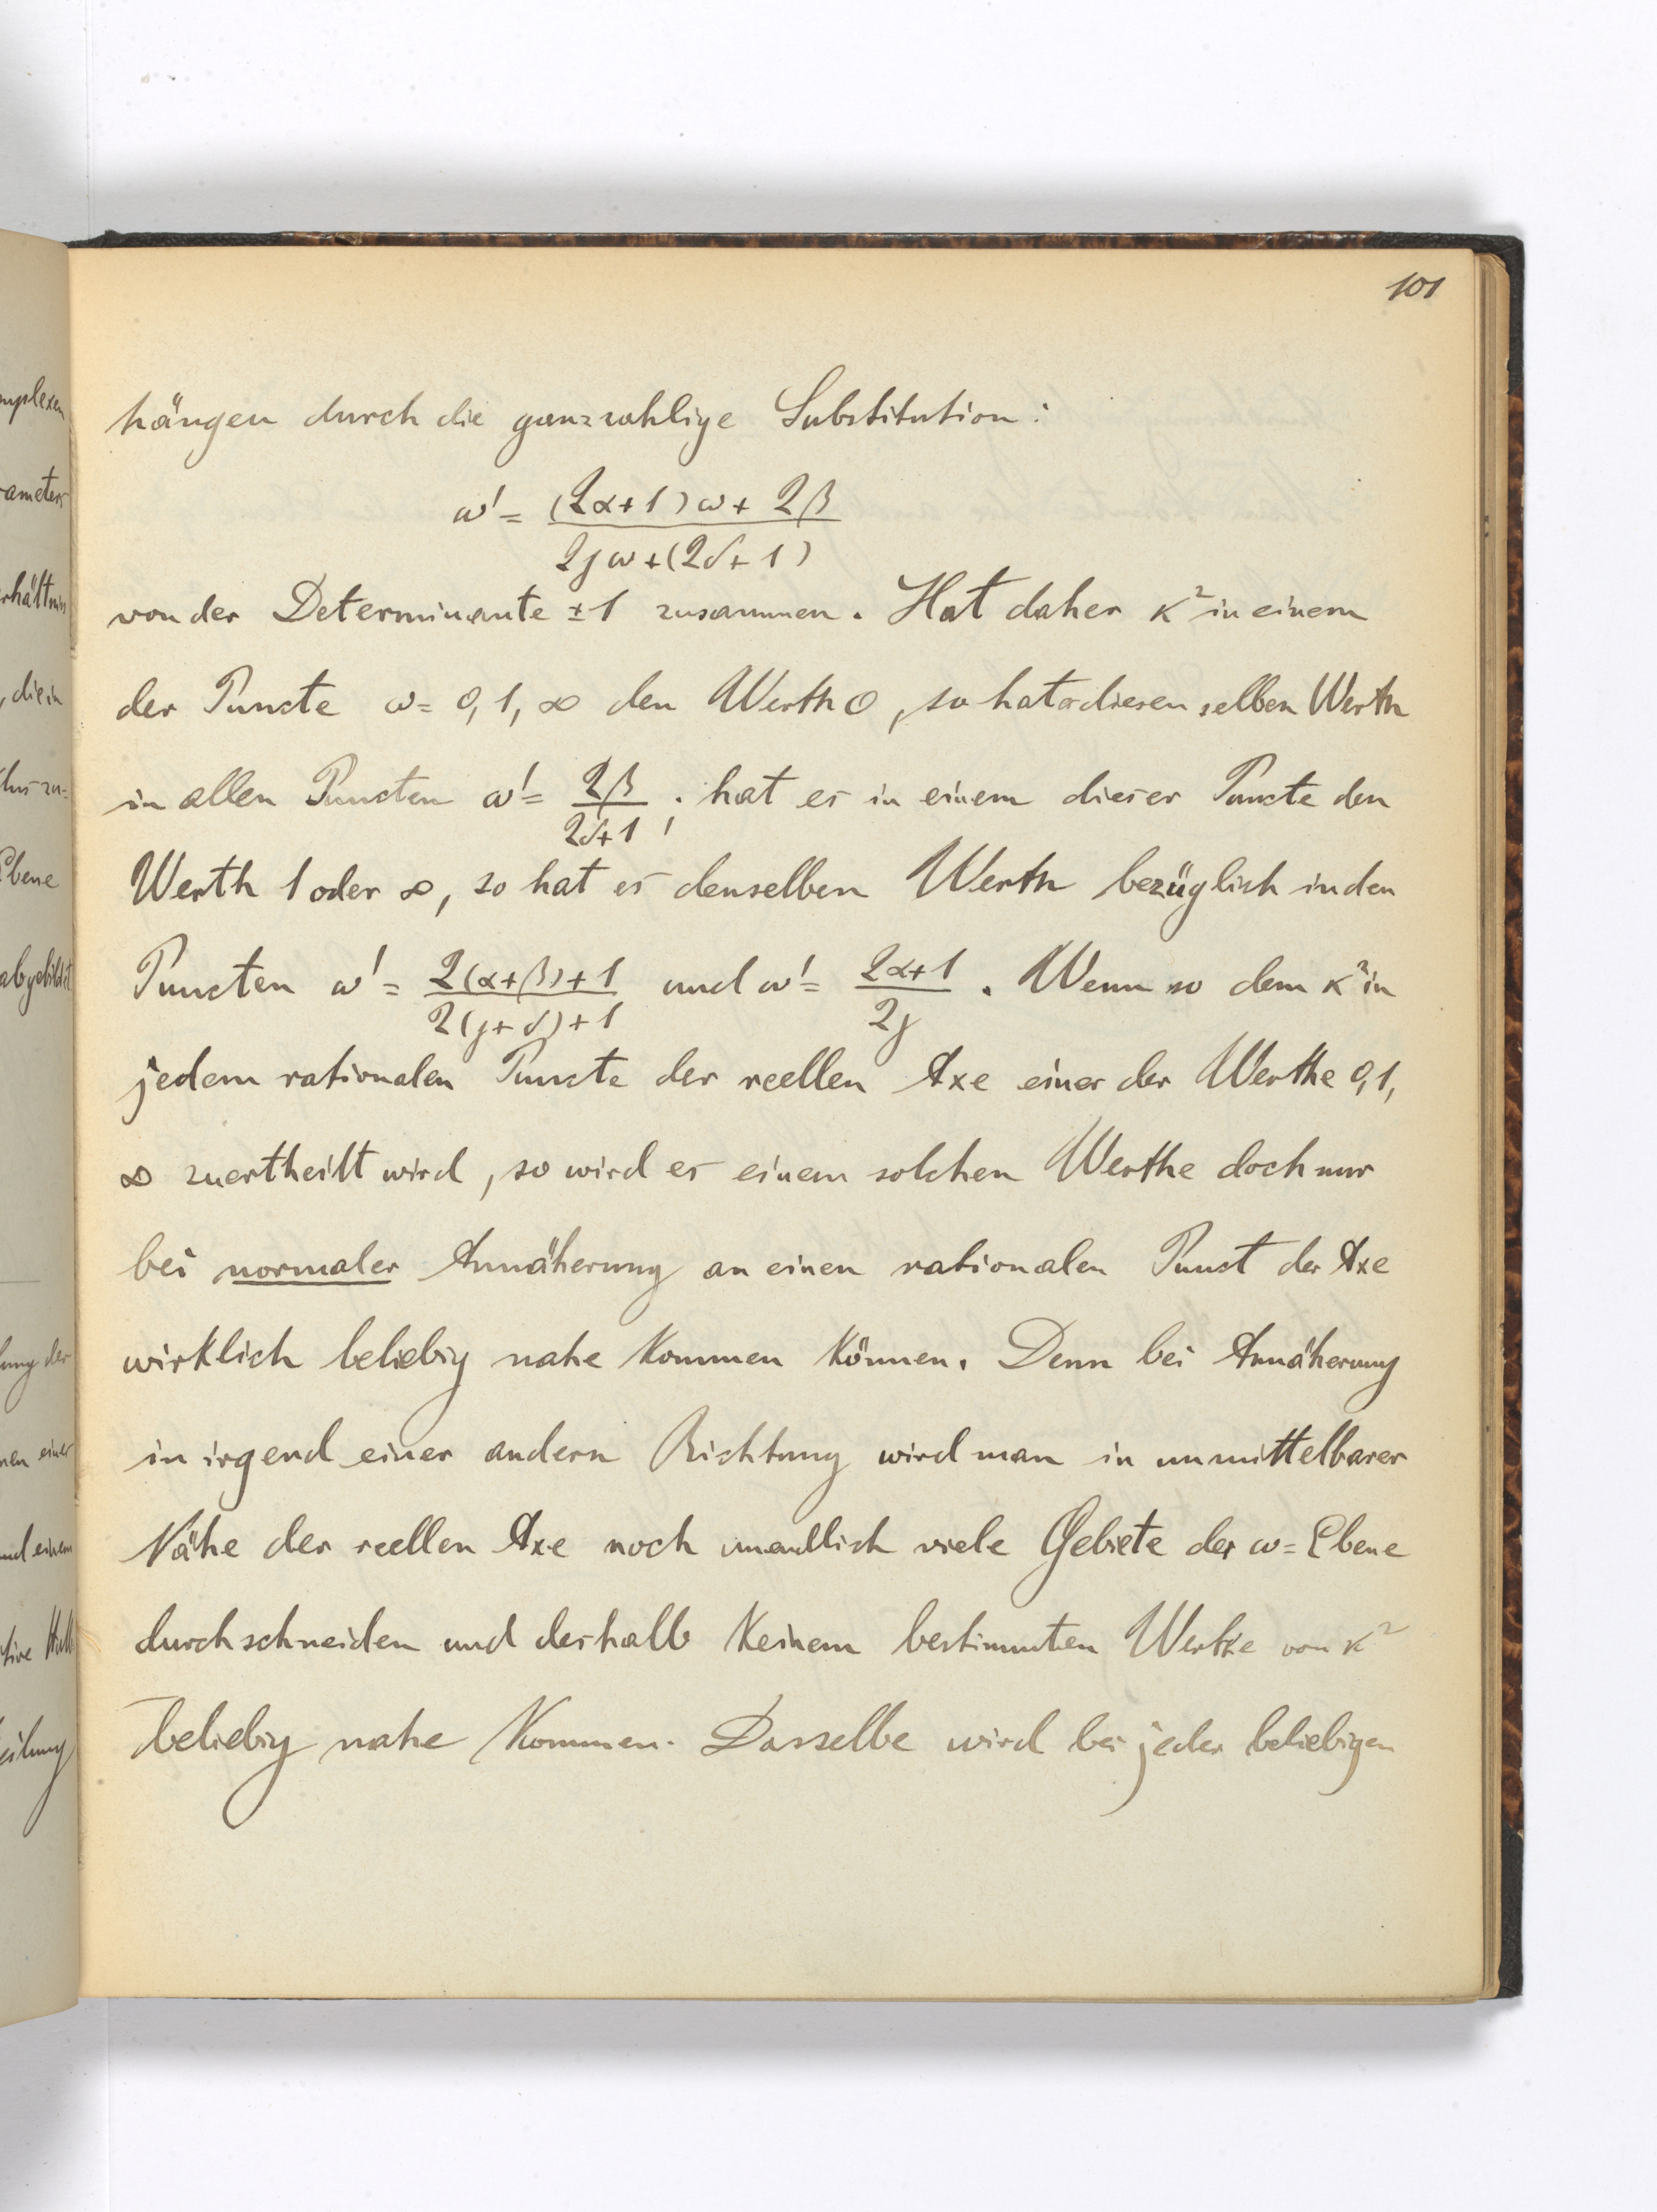 101
hängen durch die ganzzahlige Substitution:
ω' = ((2α+1)ω + 2β) / (2γω + (2δ+1))
von der Determinante ±1 zusammen. Hat daher κ² in einem
der Puncte ω = 0, 1, ∞ den Werth 0, so hat es diesen selben Werth
in allen Puncten ω' = 2β / (2δ+1); hat es in einem dieser Puncte den
Werth 1 oder ∞, so hat es denselben Werth bezüglich in den
Puncten ω' = (2(α+β)+1) / (2(γ+δ)+1) und ω' = (2α+1) / 2γ. Wenn so dem κ² in
jedem rationalen Puncte der reellen Axe einer der Werthe 0, 1,
∞ zuertheilt wird, so wird es einem solchen Werthe doch nur
bei normaler Annäherung an einen rationalen Punct der Axe
wirklich beliebig nahe kommen können. Denn bei Annäherung
in irgend einer andern Richtung wird man in unmittelbarer
Nähe der reellen Axe noch unendlich viele Gebiete der ω=Ebene
durchschneiden und deshalb keinem bestimmten Werthe von κ²
beliebig nahe kommen. Dasselbe wird bei jeder beliebigen